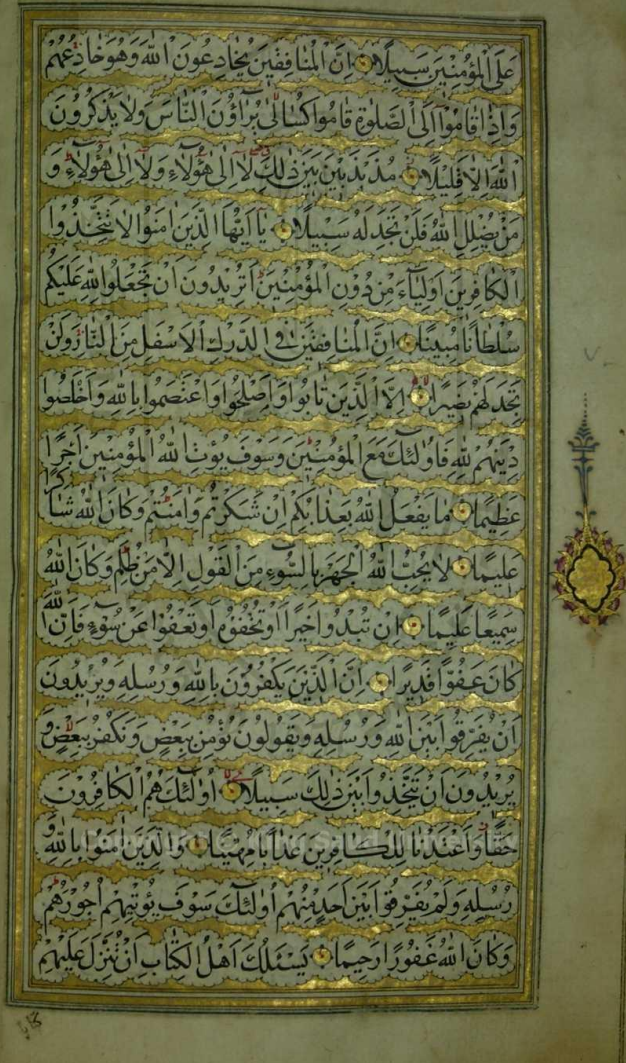 عَلَى الْمُؤْمِنِينَ سَبِيلًا اِنَّ الْمُنَافِقِينَ يُخَادِعُونَ اللّٰهَ وَهُوَ خَادِعُهُمْ
وَاِذَا قَامُوا اِلَى الصَّلٰوةِ قَامُوا كُسَالٰى يُرَاؤُنَ النَّاسَ وَلَا يَذْكُرُونَ
اللّٰهَ اِلَّا قَلِيلًا مُذَبْذَبِينَ بَيْنَ ذٰلِكَ لَا اِلٰى هٰؤُلَاءِ وَلَا اِلٰى هٰؤُلَاءِ وَ
مَنْ يُضْلِلِ اللّٰهُ فَلَنْ تَجِدَ لَهُ سَبِيلًا يَا اَيُّهَا الَّذِينَ اٰمَنُوا لَا تَتَّخِذُوا
الْكَافِرِينَ اَوْلِيَاءَ مِنْ دُونِ الْمُؤْمِنِينَ اَتُرِيدُونَ اَنْ تَجْعَلُوا لِلّٰهِ عَلَيْكُمْ
سُلْطَانًا مُبِينًا اِنَّ الْمُنَافِقِينَ فِي الدَّرْكِ الْاَسْفَلِ مِنَ النَّارِ وَلَنْ
تَجِدَ لَهُمْ نَصِيرًا اِلَّا الَّذِينَ تَابُوا وَاَصْلَحُوا وَاعْتَصَمُوا بِاللّٰهِ وَاَخْلَصُوا
دِينَهُمْ لِلّٰهِ فَاُولٰئِكَ مَعَ الْمُؤْمِنِينَ وَسَوْفَ يُؤْتِ اللّٰهُ الْمُؤْمِنِينَ اَجْرًا
عَظِيمًا مَا يَفْعَلُ اللّٰهُ بِعَذَابِكُمْ اِنْ شَكَرْتُمْ وَاٰمَنْتُمْ وَكَانَ اللّٰهُ شَاكِرًا
عَلِيمًا لَا يُحِبُّ اللّٰهُ الْجَهْرَ بِالسُّوءِ مِنَ الْقَوْلِ اِلَّا مَنْ ظُلِمَ وَكَانَ اللّٰهُ
سَمِيعًا عَلِيمًا اِنْ تُبْدُوا خَيْرًا اَوْ تُخْفُوهُ اَوْ تَعْفُوا عَنْ سُوءٍ فَاِنَّ اللّٰهَ
كَانَ عَفُوًّا قَدِيرًا اِنَّ الَّذِينَ يَكْفُرُونَ بِاللّٰهِ وَرُسُلِهِ وَيُرِيدُونَ
اَنْ يُفَرِّقُوا بَيْنَ اللّٰهِ وَرُسُلِهِ وَيَقُولُونَ نُؤْمِنُ بِبَعْضٍ وَنَكْفُرُ بِبَعْضٍ وَ
يُرِيدُونَ اَنْ يَتَّخِذُوا بَيْنَ ذٰلِكَ سَبِيلًا اُولٰئِكَ هُمُ الْكَافِرُونَ
حَقًّا وَاَعْتَدْنَا لِلْكَافِرِينَ عَذَابًا مُهِينًا وَالَّذِينَ اٰمَنُوا بِاللّٰهِ وَ
رُسُلِهِ وَلَمْ يُفَرِّقُوا بَيْنَ اَحَدٍ مِنْهُمْ اُولٰئِكَ سَوْفَ يُؤْتِيهِمْ اُجُورَهُمْ
وَكَانَ اللّٰهُ غَفُورًا رَحِيمًا يَسْئَلُكَ اَهْلُ الْكِتَابِ اَنْ تُنَزِّلَ عَلَيْهِمْ